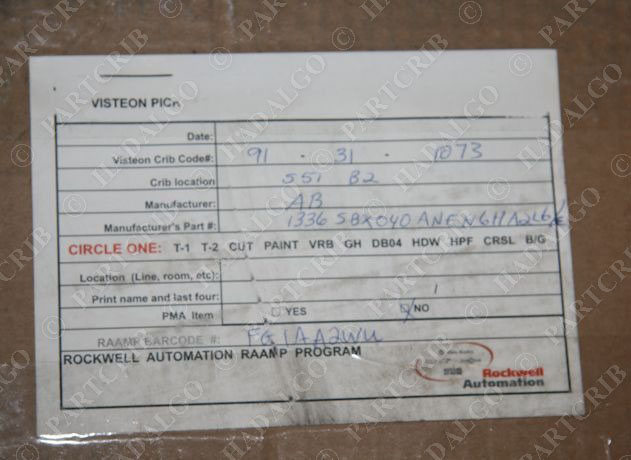 VISTEON PICK
Date:
Visteon Crib Code#: 91 - 31 - 1073
Crib location 551 B2
Manufacturer: AB
Manufacturer's Part #: 1336 SBX040 ANEN6HA2L6/E
CIRCLE ONE: T-1 T-2 CUT PAINT VRB GH DB04 HDW HPF CRSL B/G
Location (Line, room, etc):
Print name and last four:
PMA Item YES NO
RAAMP BARCODE #: FG1AA2WU
ROCKWELL AUTOMATION RAAMP PROGRAM
Rockwell
Automation
© PARTCRIB © HADALGO